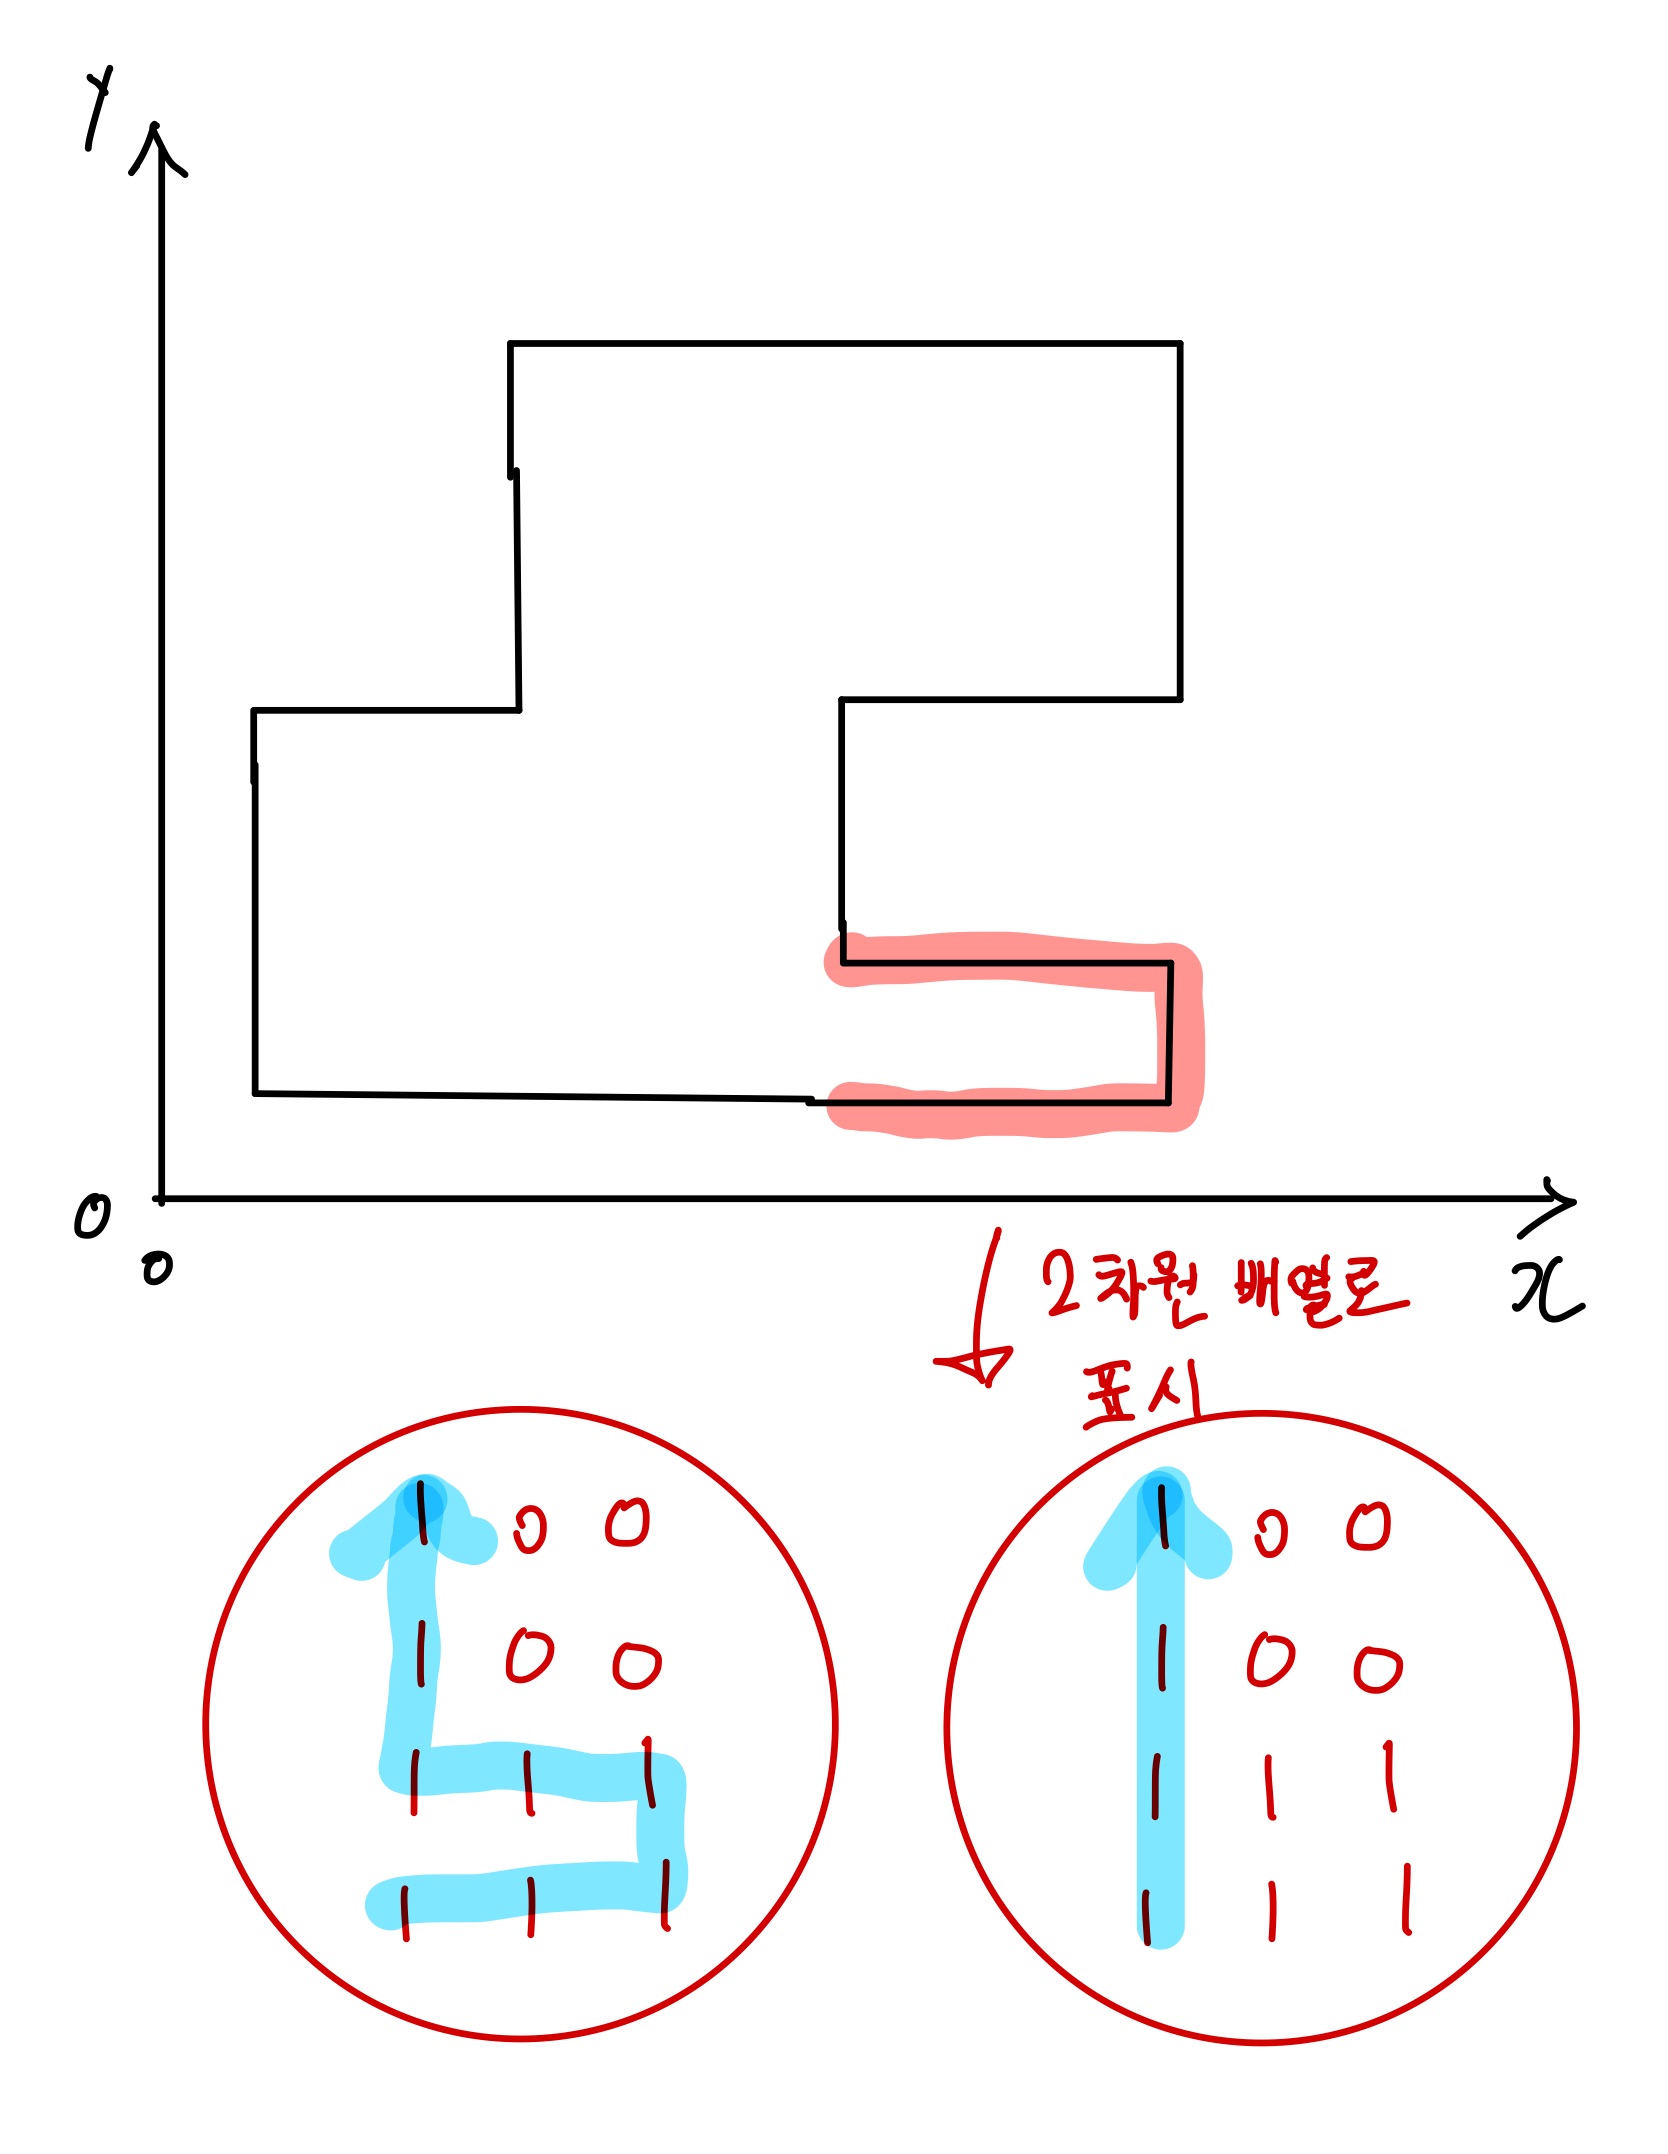 Y
0
0
x
2차원 배열로
표시
1 0 0
1 0 0
1 1 1
1 1 1
1 0 0
1 0 0
1 1 1
1 1 1